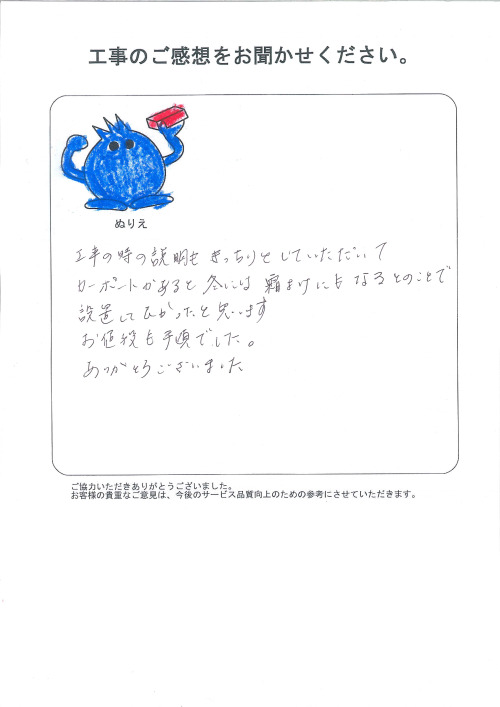 工事のご感想をお聞かせください。
ぬりえ
工事の時の説明もきっちりとしていただいて
カーポートがあると冬には霜よけにもなるとのことで
設置してよかったと思います
お値段も手頃でした。
ありがとうございました
ご協力いただきありがとうございました。
お客様の貴重なご意見は、今後のサービス品質向上のための参考にさせていただきます。